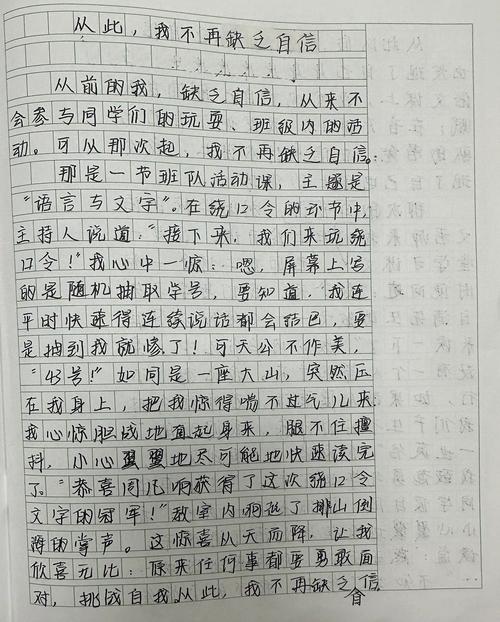 从此，我不再缺乏自信
从前的我，缺乏自信，从来不
会参与同学们的玩耍、班级内的活
动。可从那次起，我不再缺乏自信。
那是一节班队活动课，主题是
“语言与文字”。在绕口令的环节中，
主持人说道：“接下来，我们来玩绕
口令！”我心中一惊：嗯，屏幕上写
的是随机抽取学号，要知道，我连
平时快速得连续说话都会结巴，要
是抽到我就惨了！可天公不作美，
“43号！”如同是一座大山，突然压
在我身上，把我惊得喘不过气儿来
我心惊胆战地直起身来，腿不住擅
抖，小心翼翼地尽可能地快速读完
了。“恭喜同凡响获得了这次绕口令
文字的冠军！”教室内响起了排山倒
海的掌声。这惊喜从天而降，让我
欣喜无比：原来任何事都要勇敢面
对，挑战自我。从此，我不再缺乏自信